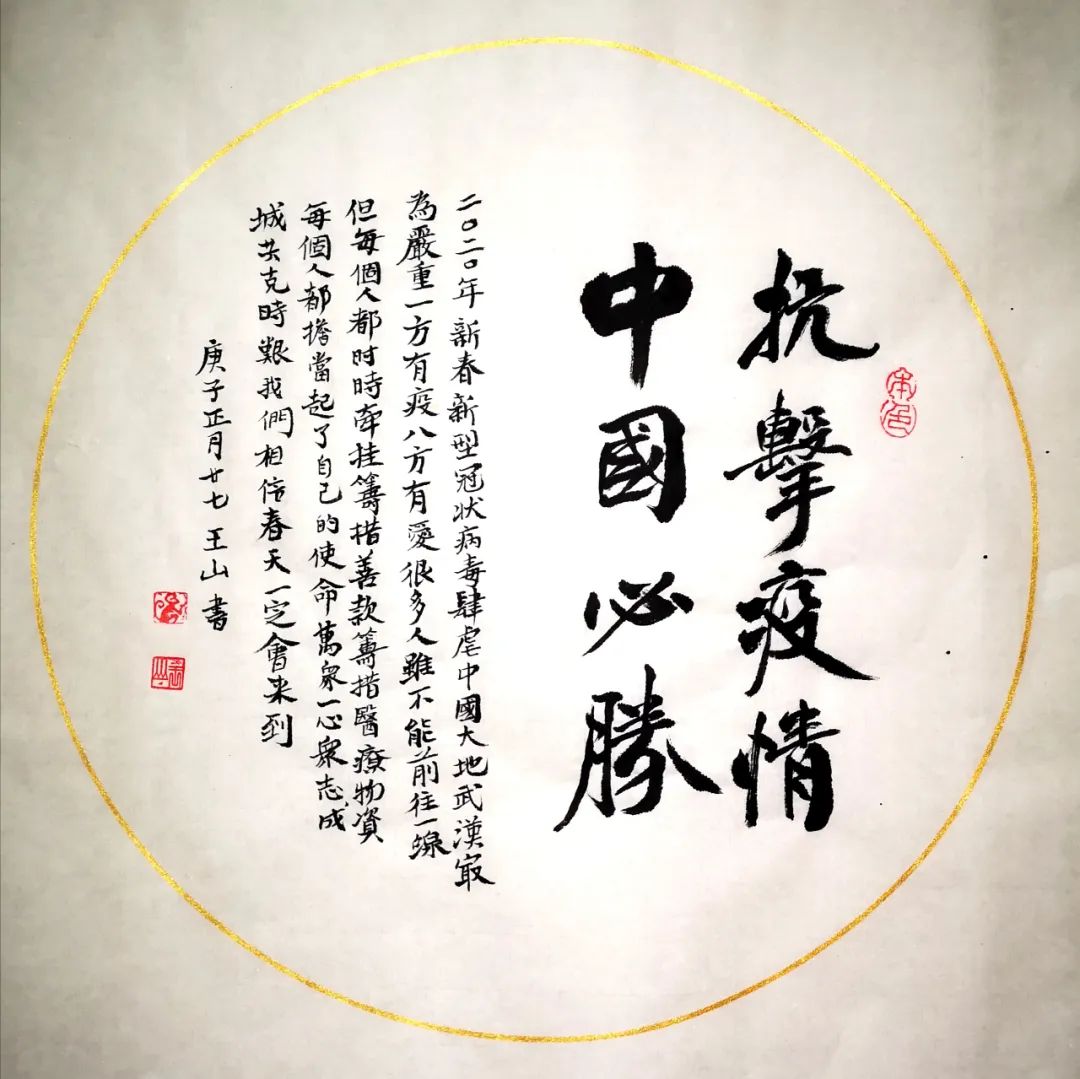 抗擊疫情
中國必勝
二〇二〇年新春新型冠狀病毒肆虐中國大地武漢寂
為嚴重一方有疫八方有愛很多人雖不能前往一線
但每個人都时時牽挂籌措善款籌措醫療物資
每個人都擔當起了自己的使命萬衆一心衆志成
城共克時艱我們相信春天一定會来到
庚子正月廿七王山書
本色